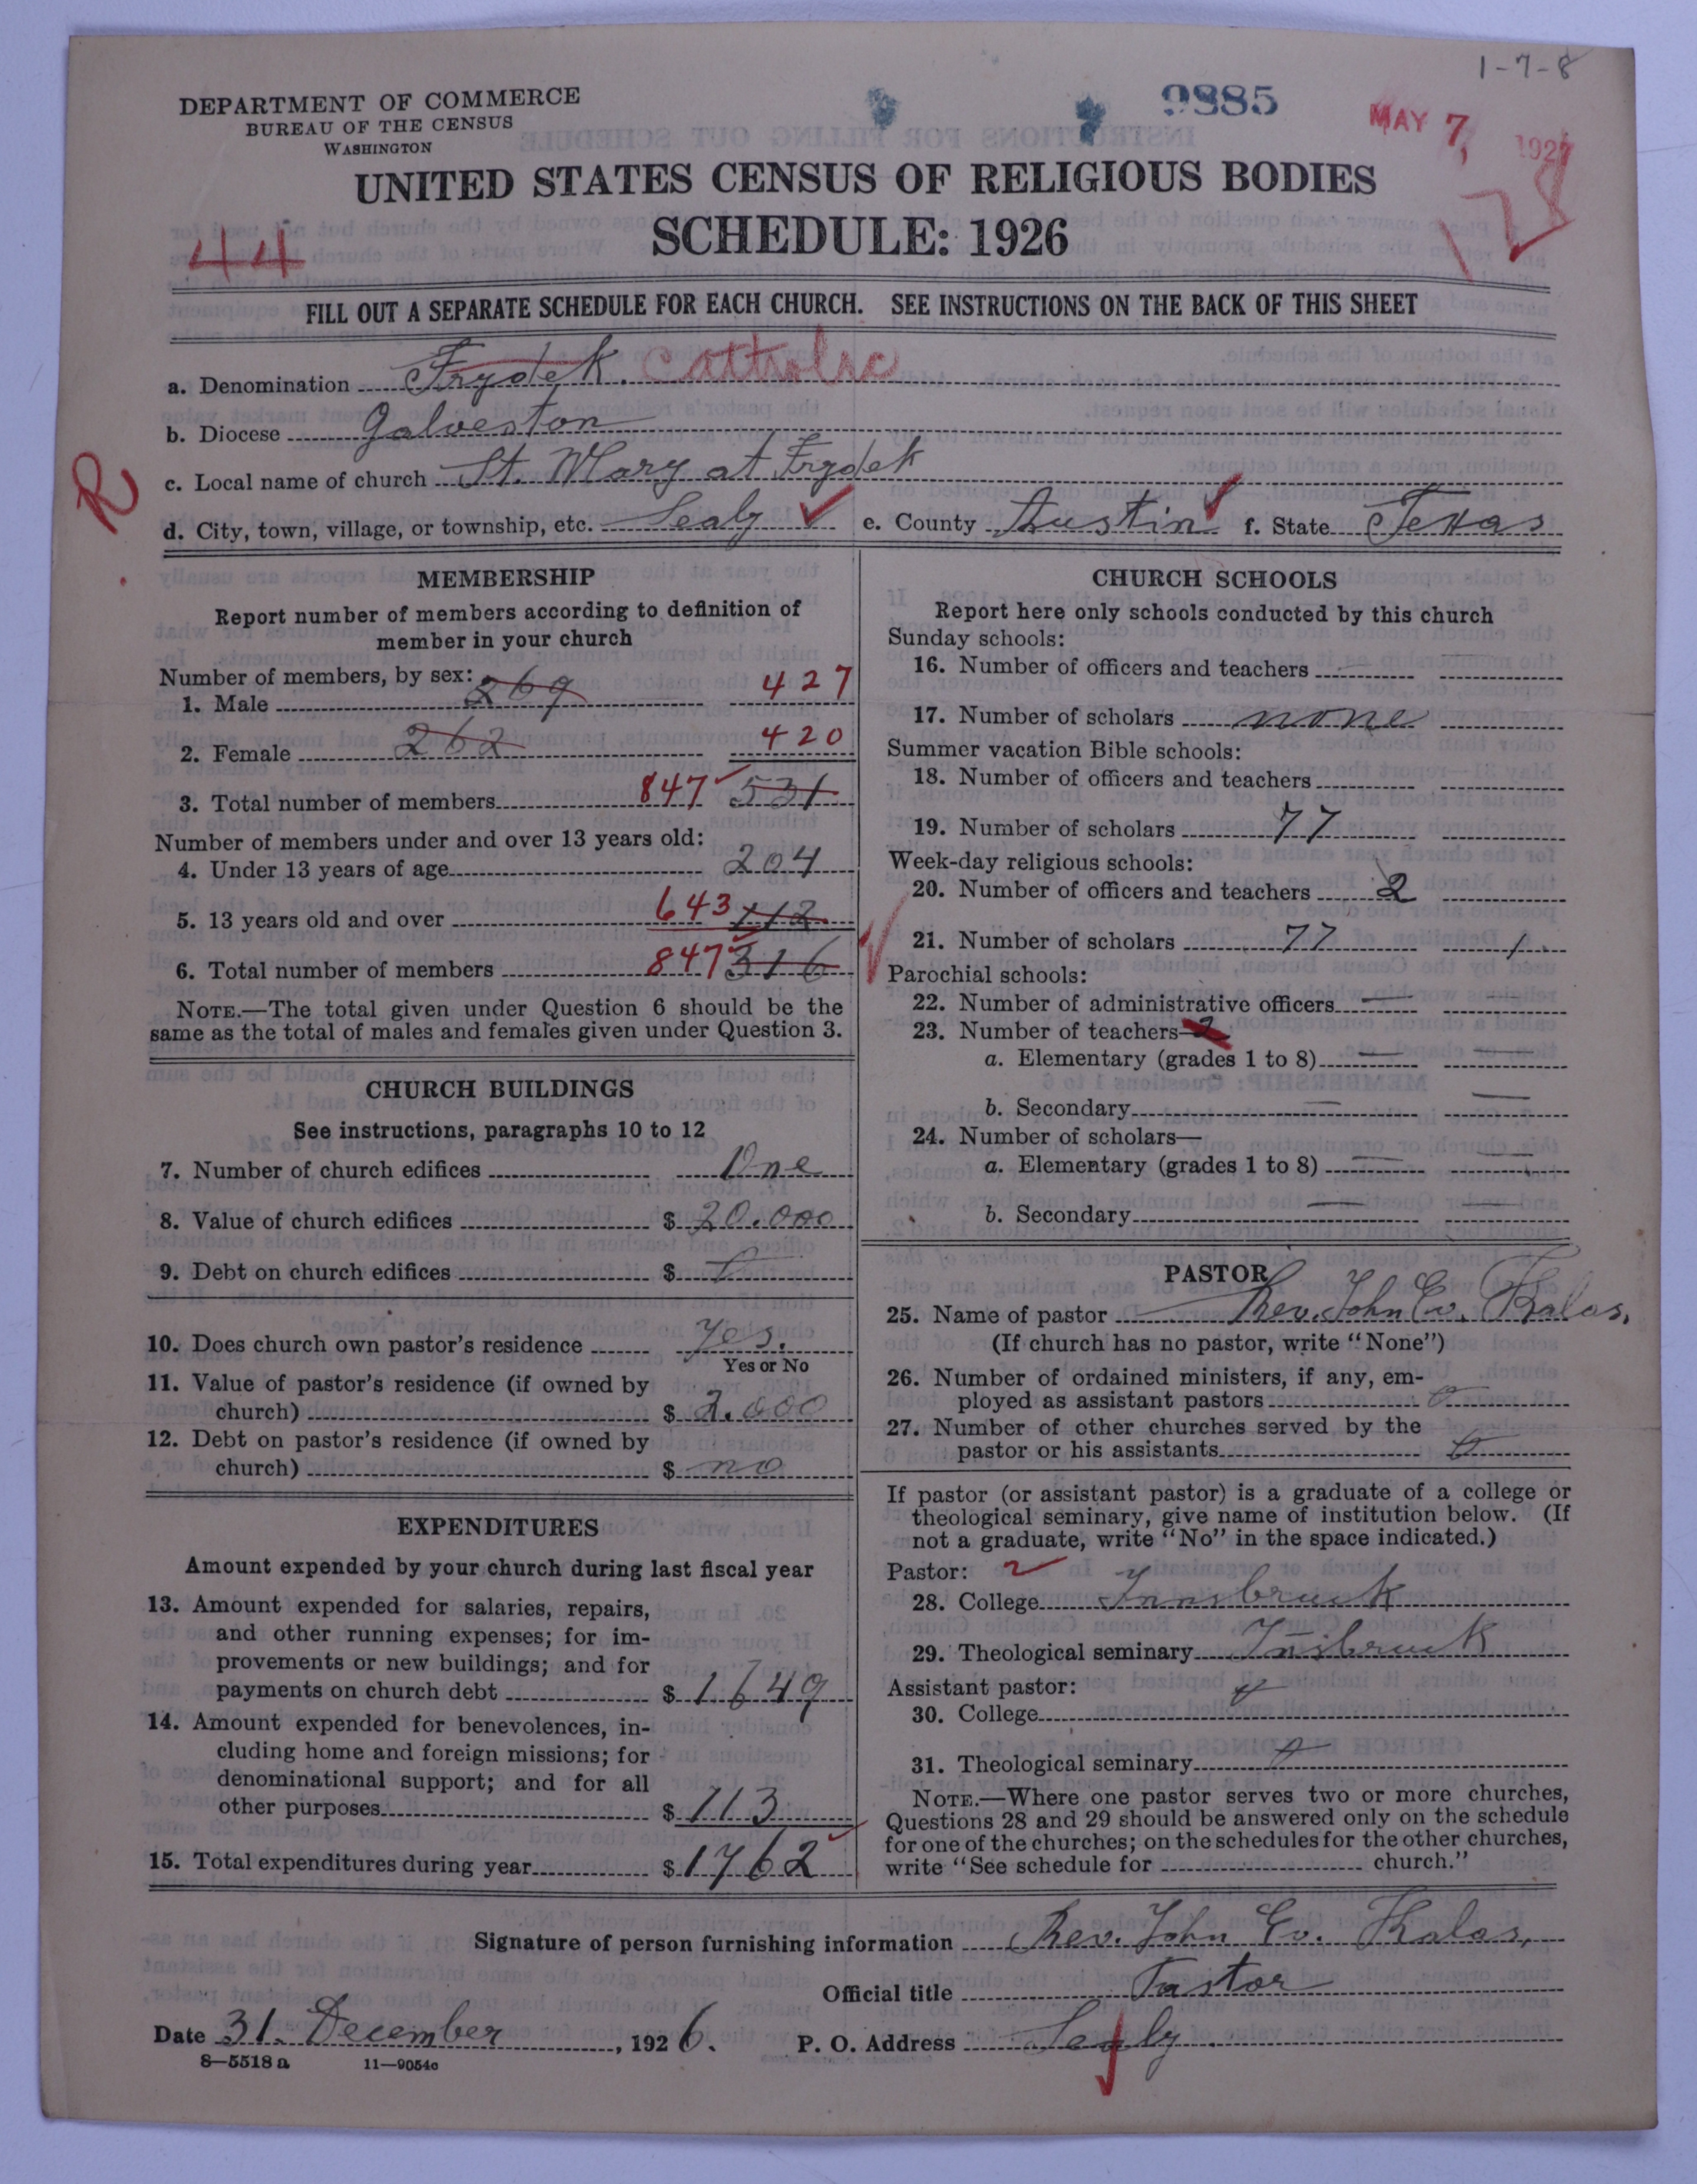 1-7-8
DEPARTMENT OF COMMERCE
BUREAU OF THE CENSUS
WASHINGTON
9885
MAY 7, 1927
UNITED STATES CENSUS OF RELIGIOUS BODIES
SCHEDULE: 1926
44
178
FILL OUT A SEPARATE SCHEDULE FOR EACH CHURCH. SEE INSTRUCTIONS ON THE BACK OF THIS SHEET
a. Denomination Frydek. Catholic
b. Diocese Galveston
c. Local name of church St. Mary at Frydek
R
d. City, town, village, or township, etc. Sealy e. County Austin f. State Texas
MEMBERSHIP
Report number of members according to definition of
member in your church
Number of members, by sex:
1. Male 269 427
2. Female 262 420
3. Total number of members 847 531
Number of members under and over 13 years old:
4. Under 13 years of age 204
5. 13 years old and over 643 112
6. Total number of members 847 316
NOTE.—The total given under Question 6 should be the
same as the total of males and females given under Question 3.
CHURCH BUILDINGS
See instructions, paragraphs 10 to 12
7. Number of church edifices One
8. Value of church edifices $ 20.000
9. Debt on church edifices $
10. Does church own pastor's residence Yes.
Yes or No
11. Value of pastor's residence (if owned by
church) $ 2.000
12. Debt on pastor's residence (if owned by
church) $ no
EXPENDITURES
Amount expended by your church during last fiscal year
13. Amount expended for salaries, repairs,
and other running expenses; for im-
provements or new buildings; and for
payments on church debt $ 1649
14. Amount expended for benevolences, in-
cluding home and foreign missions; for
denominational support; and for all
other purposes $ 113
15. Total expenditures during year $ 1762
CHURCH SCHOOLS
Report here only schools conducted by this church
Sunday schools:
16. Number of officers and teachers
17. Number of scholars none
Summer vacation Bible schools:
18. Number of officers and teachers
19. Number of scholars 77
Week-day religious schools:
20. Number of officers and teachers 2
21. Number of scholars 77
Parochial schools:
22. Number of administrative officers
23. Number of teachers— 2
a. Elementary (grades 1 to 8)
b. Secondary
24. Number of scholars—
a. Elementary (grades 1 to 8)
b. Secondary
PASTOR
25. Name of pastor Rev. John Ev. Kalas,
(If church has no pastor, write "None")
26. Number of ordained ministers, if any, em-
ployed as assistant pastors
27. Number of other churches served by the
pastor or his assistants
If pastor (or assistant pastor) is a graduate of a college or
theological seminary, give name of institution below. (If
not a graduate, write "No" in the space indicated.)
Pastor:
28. College Innsbruck
29. Theological seminary Insbruck
Assistant pastor:
30. College
31. Theological seminary
NOTE.—Where one pastor serves two or more churches,
Questions 28 and 29 should be answered only on the schedule
for one of the churches; on the schedules for the other churches,
write "See schedule for church."
Signature of person furnishing information Rev. John Ev. Kalas,
Official title Pastor
Date 31. December, 1926. P. O. Address Sealy
8—5518a 11—9054c